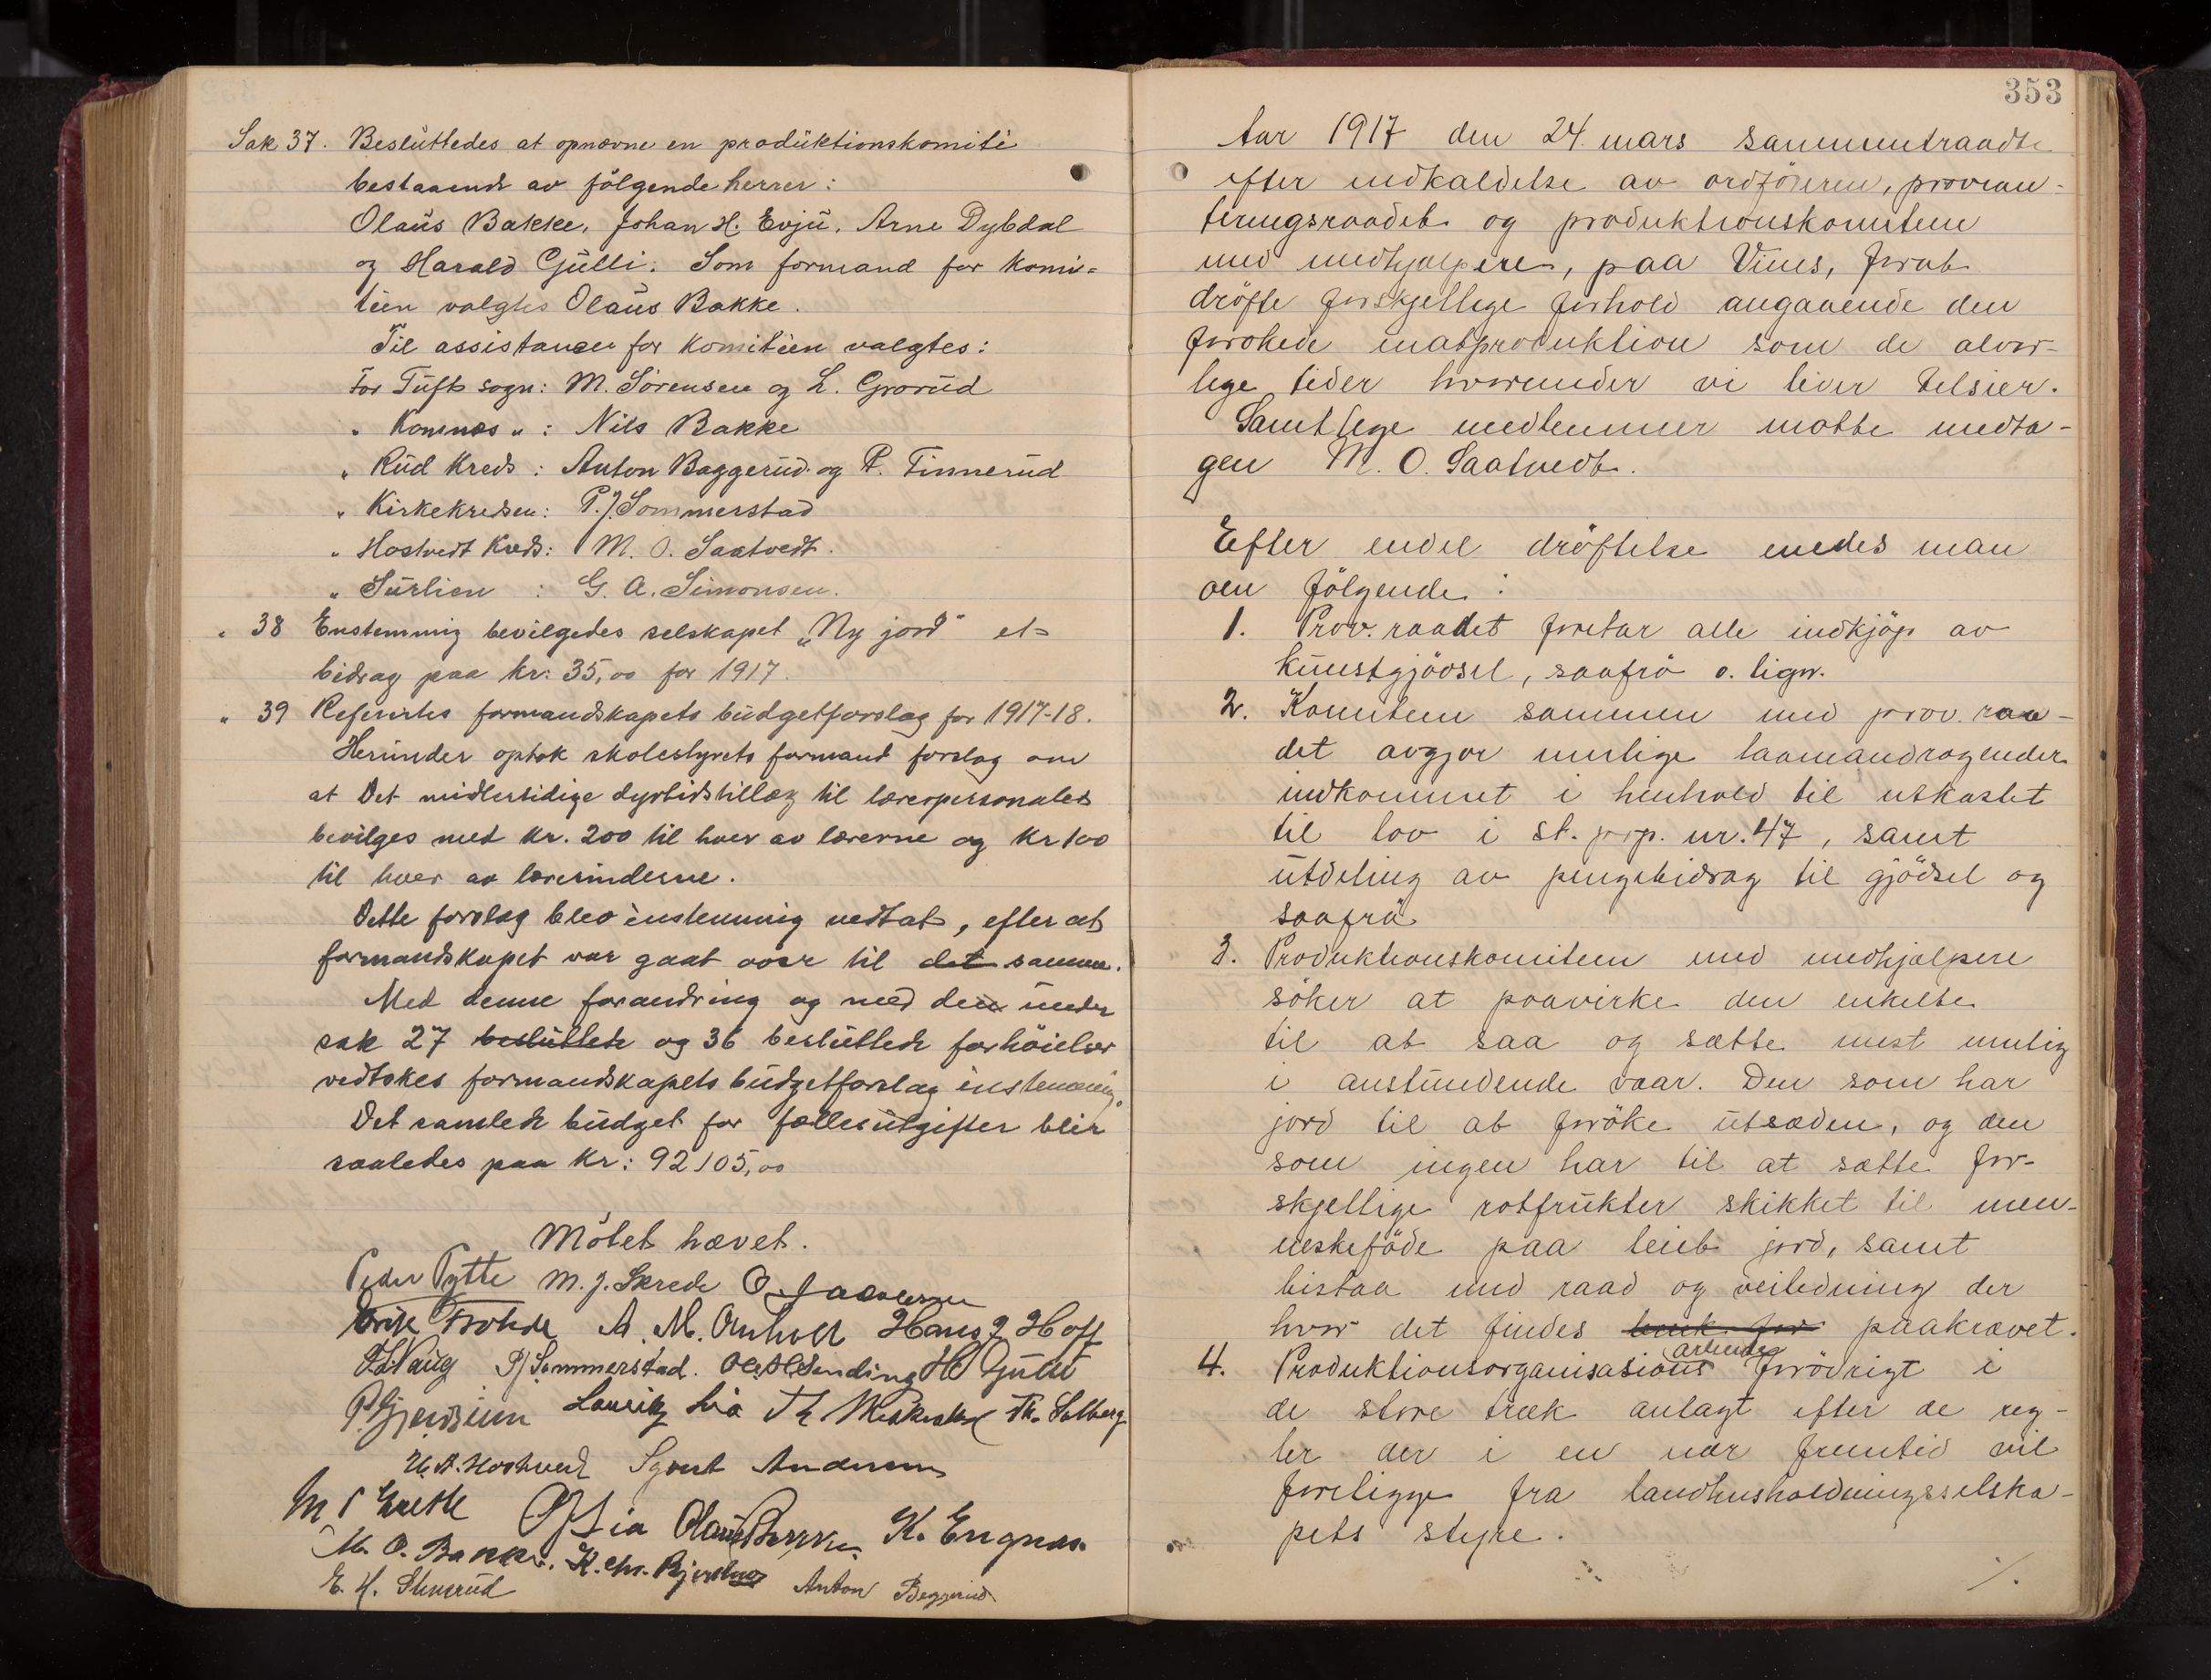 Sak 37. Besluttedes at opnævne en produktionskomite
bestaaende av følgende herrer:
Olaus Bakke, Johan H. Evju, Arne Dybdal
og Harald Gulli. Som formand for komi-
teen valgtes Olaus Bakke.
Til assistanse for komiteen valgtes:
For Tuft sogn: M. Sørensen og L. Grorud
" Komnæs ": Nils Bakke
" Rud Kreds: Anton Baggerud og P. Tinnerud
" Kirkekredsen: P.J. Sommerstad
" Hostvedt Kreds: M. O. Saatvedt.
" Surlien : G. A. Simonsen.
" 38 Enstemmig bevilgedes selskapet "Ny jord" et
bidrag paa kr: 35,00 for 1917.
" 39 Refertes formandskapets budgetforslag for 1917-18.
Herunder optok skolestyrets formand forslag om
at Det midlertidige dyrtidstillæg til lærerpersonalet
bevilges med kr. 200 til hver av lærerne og kr 100
til hver av lærerinderne.
Dette forslag blev enstemmig vedtat, efter at
formandskapet var gaat over til det samme.
Med denne forandring og med den under
sak 27 besluttede og 36 besluttede forhöielser
vedtokes formandskapets budgetforslag enstemmig.
Det samlede budget for fællesutgifter blir
saaledes paa kr: 92105,00
Mötet hævet.
Peder Pytte M. J. Skrede O. Jacobsen
A. M. Hans J. Hoff
P J Sommerstad. H Gulli
Lauritz Lia Th. Solberg
H. A. Hostvedt Syvert Andersen
Lia K. Engnæs.
M. O. Bakke. K. Chr.
E. H. Stensrud Anton Baggerud
353
Aar 1917 den 24. mars sammentraadte
efter indkaldelse av ordföreren, provian-
teringsraadet og produktionskomiteen
med medhjælpere, paa Vines, for at
dröfte forskjellige forhold angaaende den
forøkede matproduktion som de alvor-
lige tider hvorunder vi lever tilsier.
Samtlige medlemmer møtte undta-
gen M. O. Saatvedt.
Efter endel dröftelse enedes man
om fölgende:
1. Prov. raadet foretar alle indkjöp av
kunstgjödsel, saafrö o. lign.
2. Komiteen sammen med prov. raa-
det avgjør mulige laaneandragender
indkommet i henhold til utkastet
til lov i st. prp. nr. 47, samt
utdeling av pengebidrag til gjödsel og
saafrö.
3. Produktionskomiteen med medhjælpere
söker at paavirke den enkelte
til at saa og sætte mest mulig
i anstundende vaar. Den som har
jord til at foröke utsæden, og den
som ingen har til at sætte for-
skjellige rotfrukter skikket til men-
neskeföde paa leiet jord, samt
bistaa med raad og veiledning der
hvor det findes bruk for paakrævet.
4. Produktionsorganisasions arbeide forövrigt i
de store træk anlagt efter de reg-
ler der i en nær fremtid vil
foreligge fra landhusholdningsselska-
pets styre.
./.